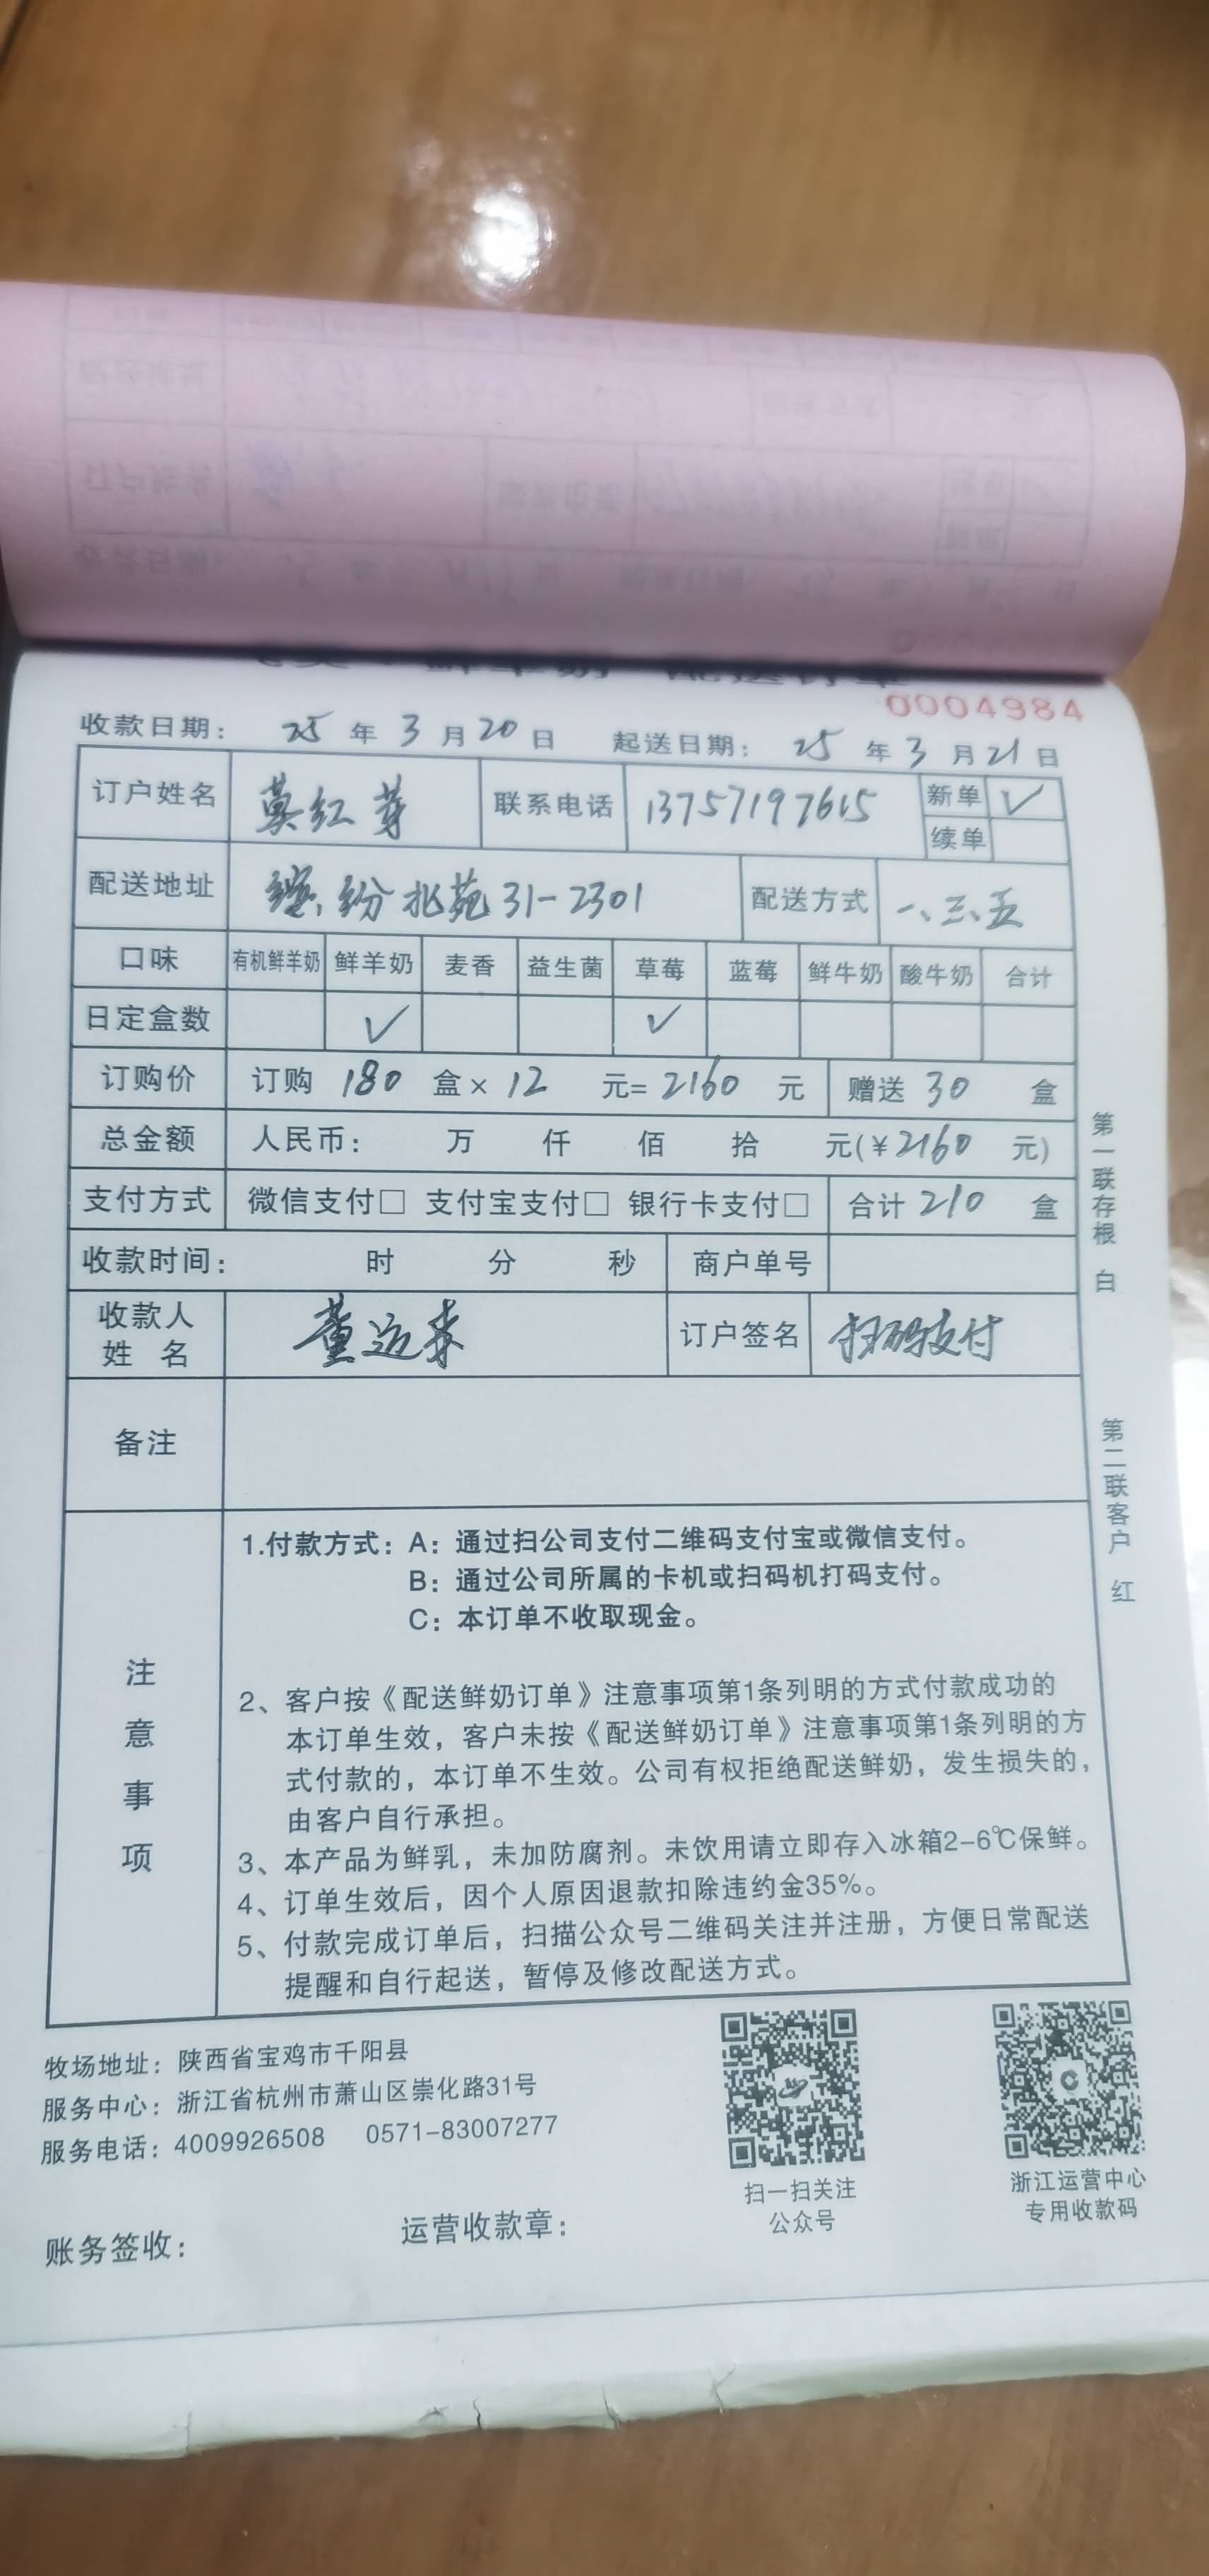 鲜羊奶 配送订单
0004984
收款日期: 25 年 3 月 20 日 起送日期: 25 年 3 月 21 日
订户姓名 莫红芽 联系电话 13757197615 新单 ✓
续单
配送地址 缤纷北苑 31-2301 配送方式 一、三、五
口味 有机鲜羊奶 鲜羊奶 麦香 益生菌 草莓 蓝莓 鲜牛奶 酸牛奶 合计
日定盒数 ✓ ✓
订购价 订购 180 盒× 12 元= 2160 元 赠送 30 盒
总金额 人民币: 万 仟 佰 拾 元(¥2160 元)
支付方式 微信支付□ 支付宝支付□ 银行卡支付□ 合计 210 盒
收款时间: 时 分 秒 商户单号
收款人姓名 董远来 订户签名 扫码支付
备注
注意事项
1.付款方式: A: 通过扫公司支付二维码支付宝或微信支付。
B: 通过公司所属的卡机或扫码机打码支付。
C: 本订单不收取现金。
2、客户按《配送鲜奶订单》注意事项第1条列明的方式付款成功的
本订单生效，客户未按《配送鲜奶订单》注意事项第1条列明的方
式付款的，本订单不生效。公司有权拒绝配送鲜奶，发生损失的，
由客户自行承担。
3、本产品为鲜乳，未加防腐剂。未饮用请立即存入冰箱2-6℃保鲜。
4、订单生效后，因个人原因退款扣除违约金35%。
5、付款完成订单后，扫描公众号二维码关注并注册，方便日常配送
提醒和自行起送，暂停及修改配送方式。
第一联存根 白
第二联客户 红
牧场地址: 陕西省宝鸡市千阳县
服务中心: 浙江省杭州市萧山区崇化路31号
服务电话: 4009926508 0571-83007277
扫一扫关注
公众号
浙江运营中心
专用收款码
账务签收: 运营收款章: